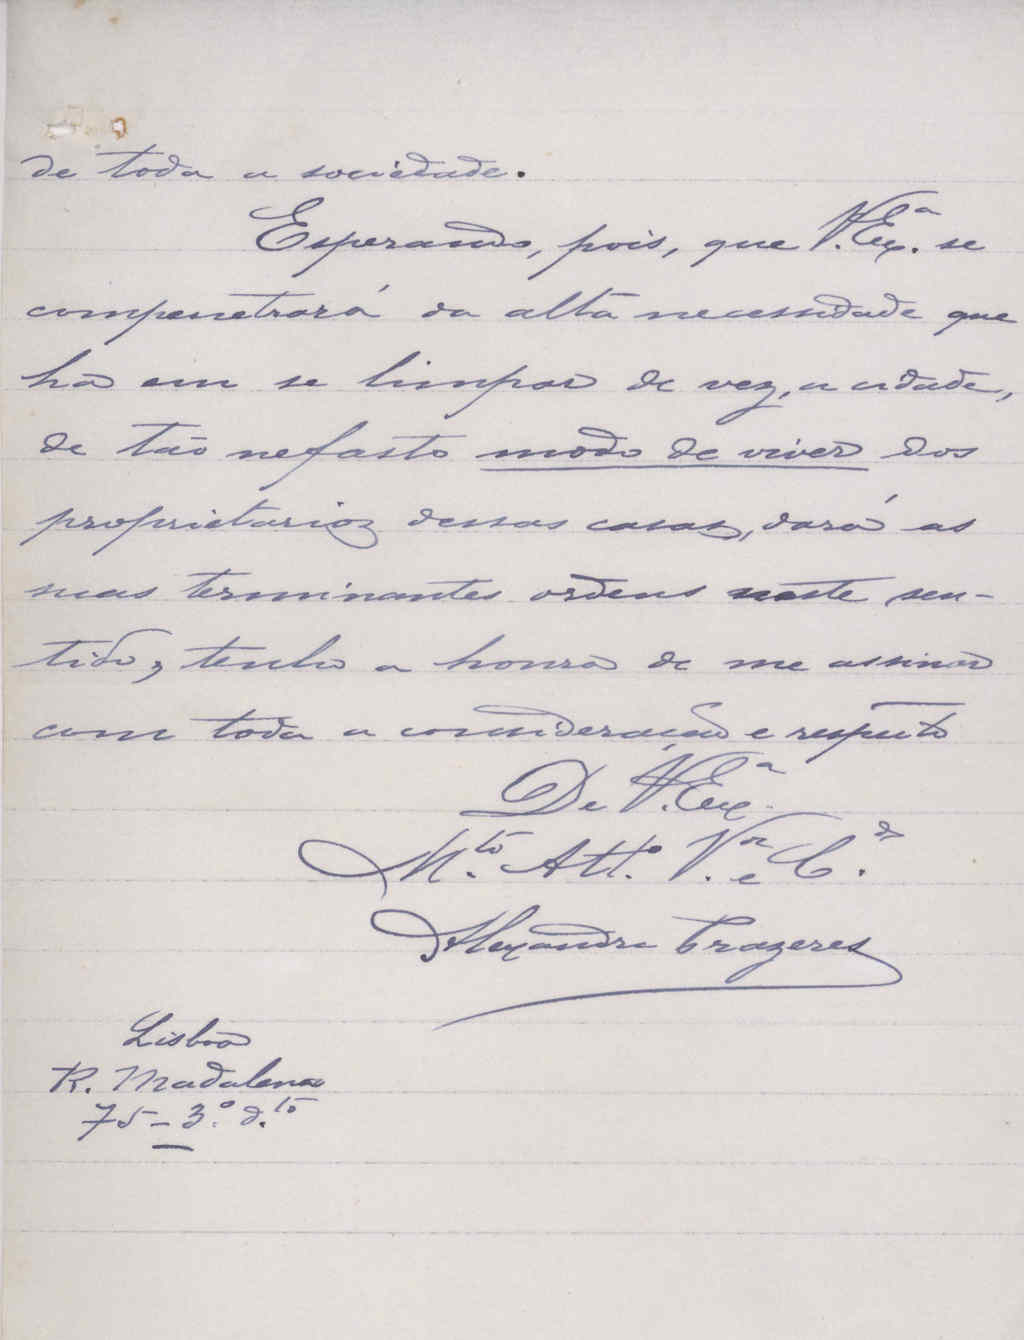 de toda a sociedade.
Esperando, pois, que V. Exª. se
compenetrará da alta necessidade que
ha em se limpar de vez, a cidade,
de tão nefasto modo de viver dos
proprietarios dessas casas, dará as
suas terminantes ordens neste sen-
tido, tenho a honra de me assinar
com toda a consideração e respeito
De V. Exª.
M.to Att.o V.or e C.
Alexandre Prazeres
Lisboa
R. Madalena
75 - 3.º d.to